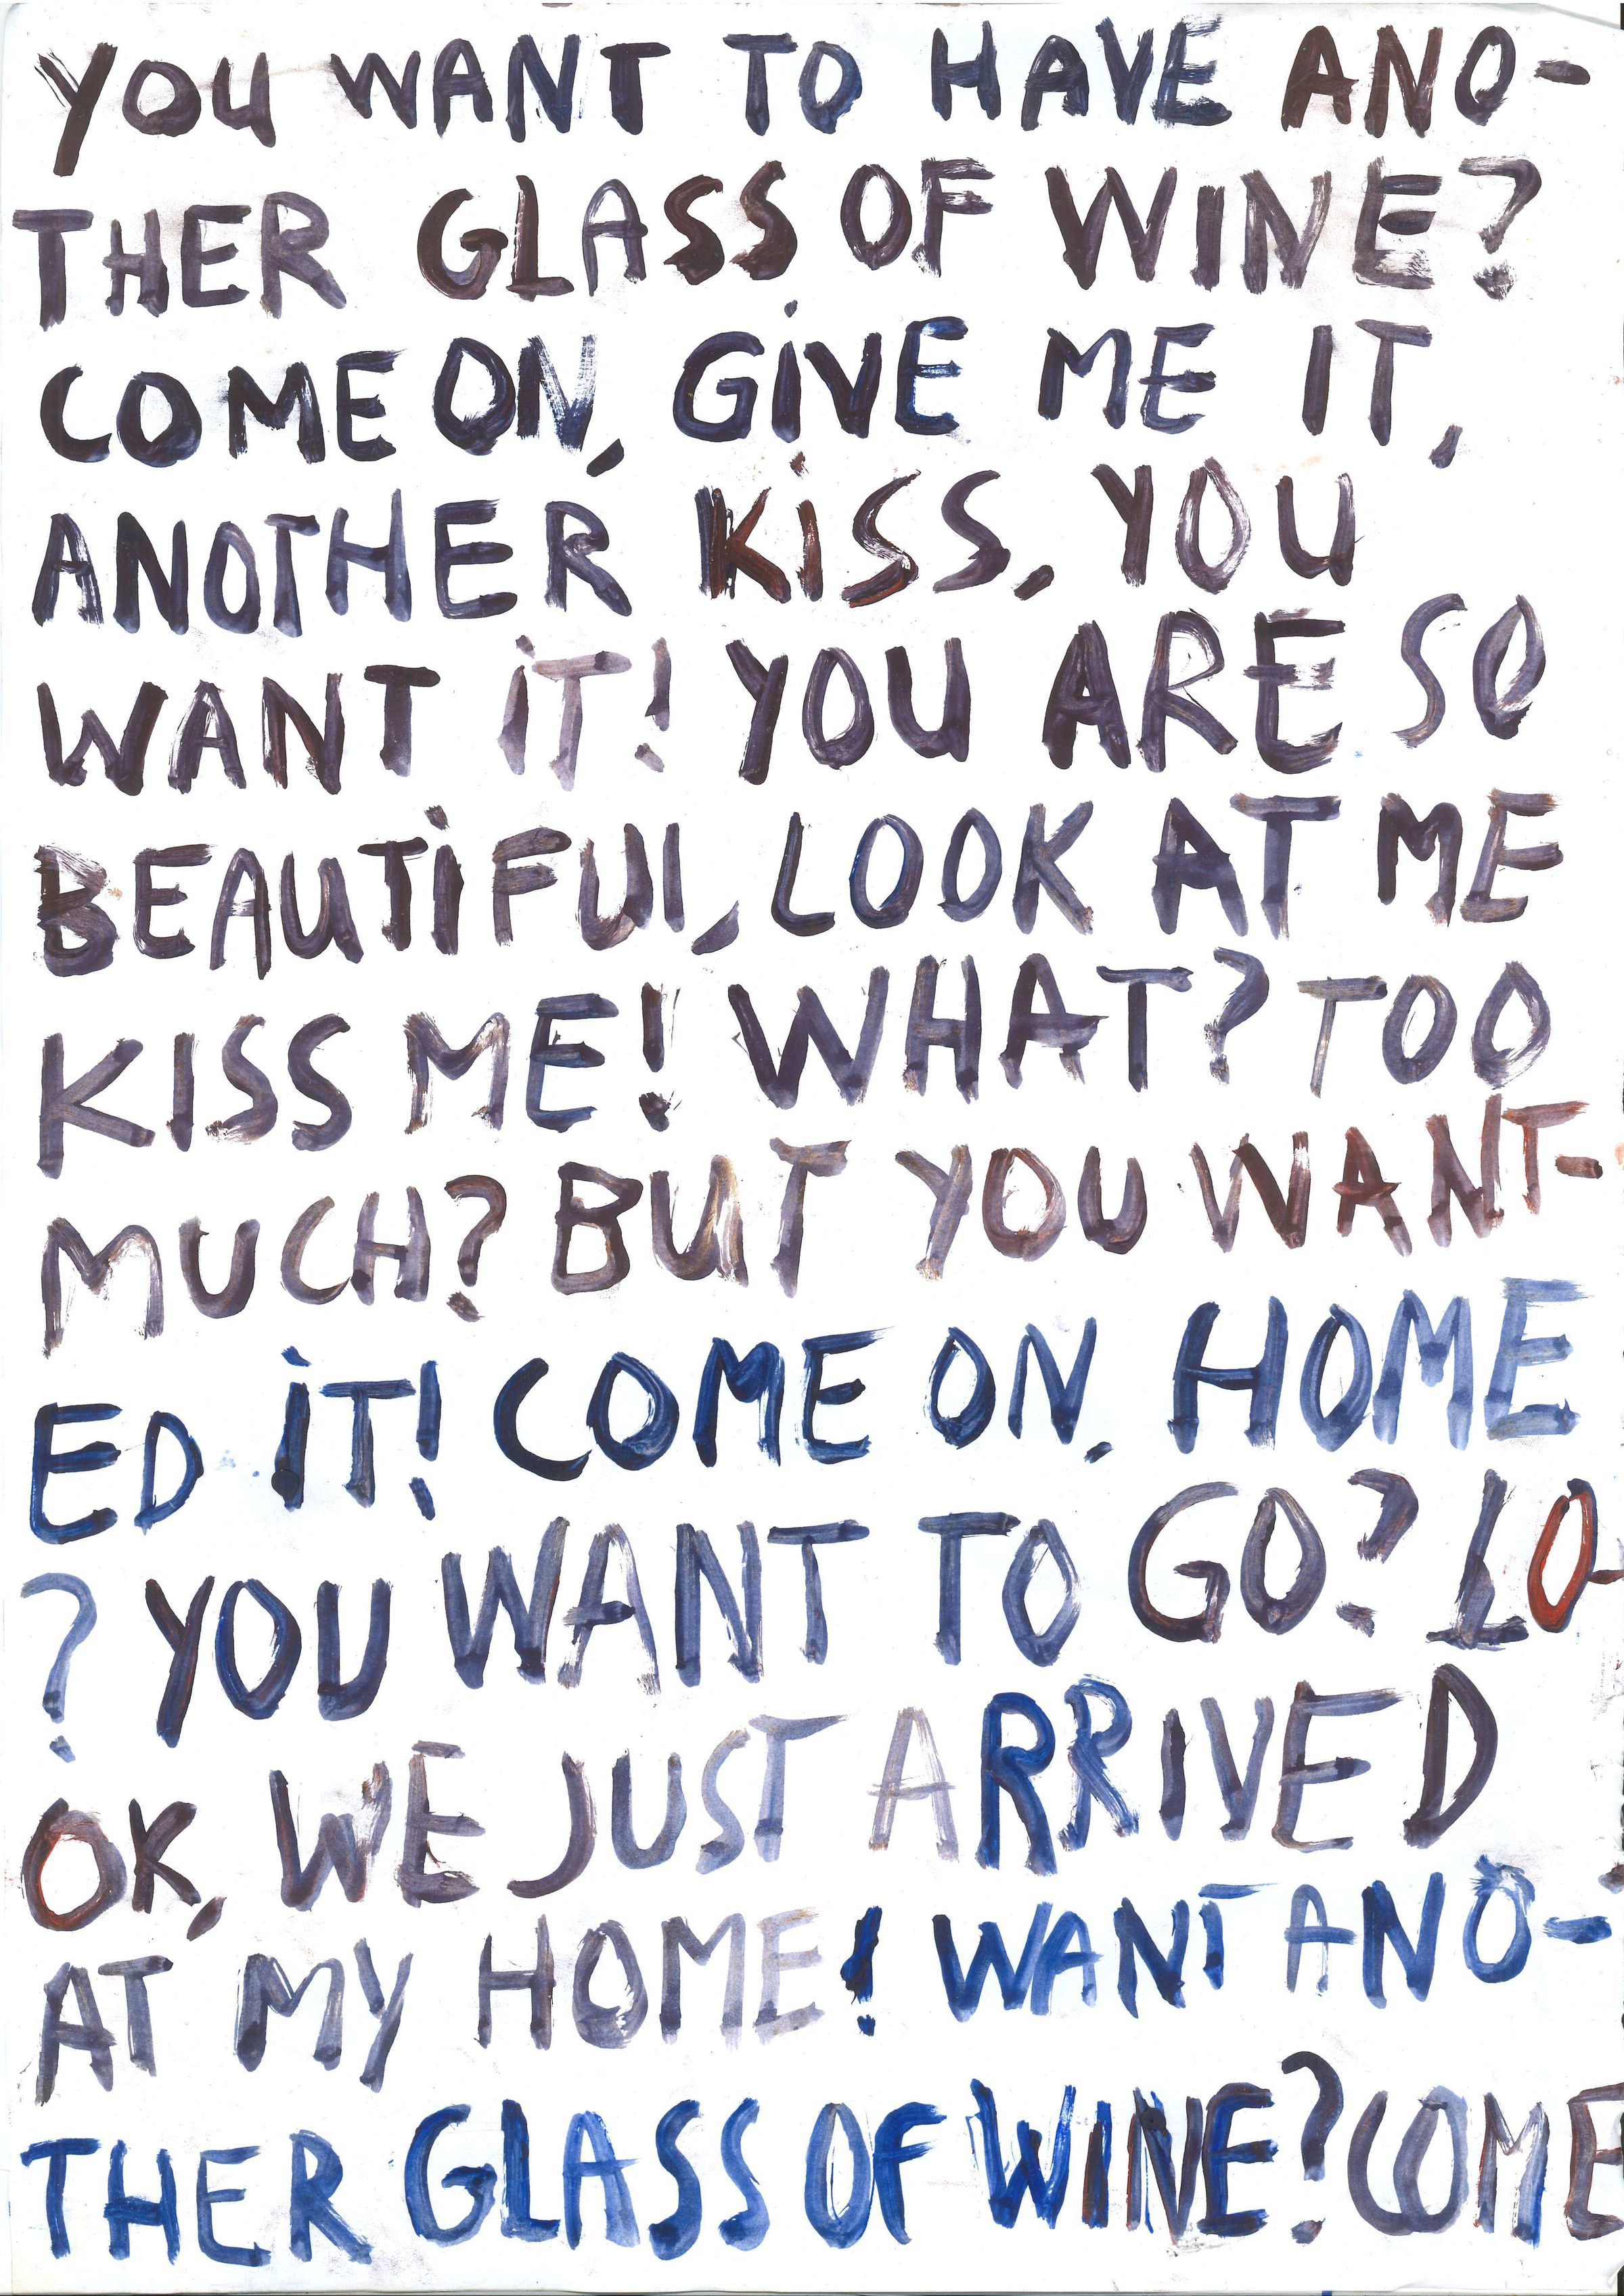 YOU WANT TO HAVE ANO-
THER GLASS OF WINE?
COME ON, GiVE ME IT,
ANOTHER KiSS, YOU
WANT iT! YOU ARE SO
BEAUTiFUl, LOOK AT ME
KISS ME! WHAT? TOO
MUCH? BUT YOU WANT-
ED iT! COME ON, HOME
? YOU WANT TO GO? LO-
OK, WE JUST ARRIVED
AT MY HOME! WANT ANO-
THER GLASS OF WINE? COME